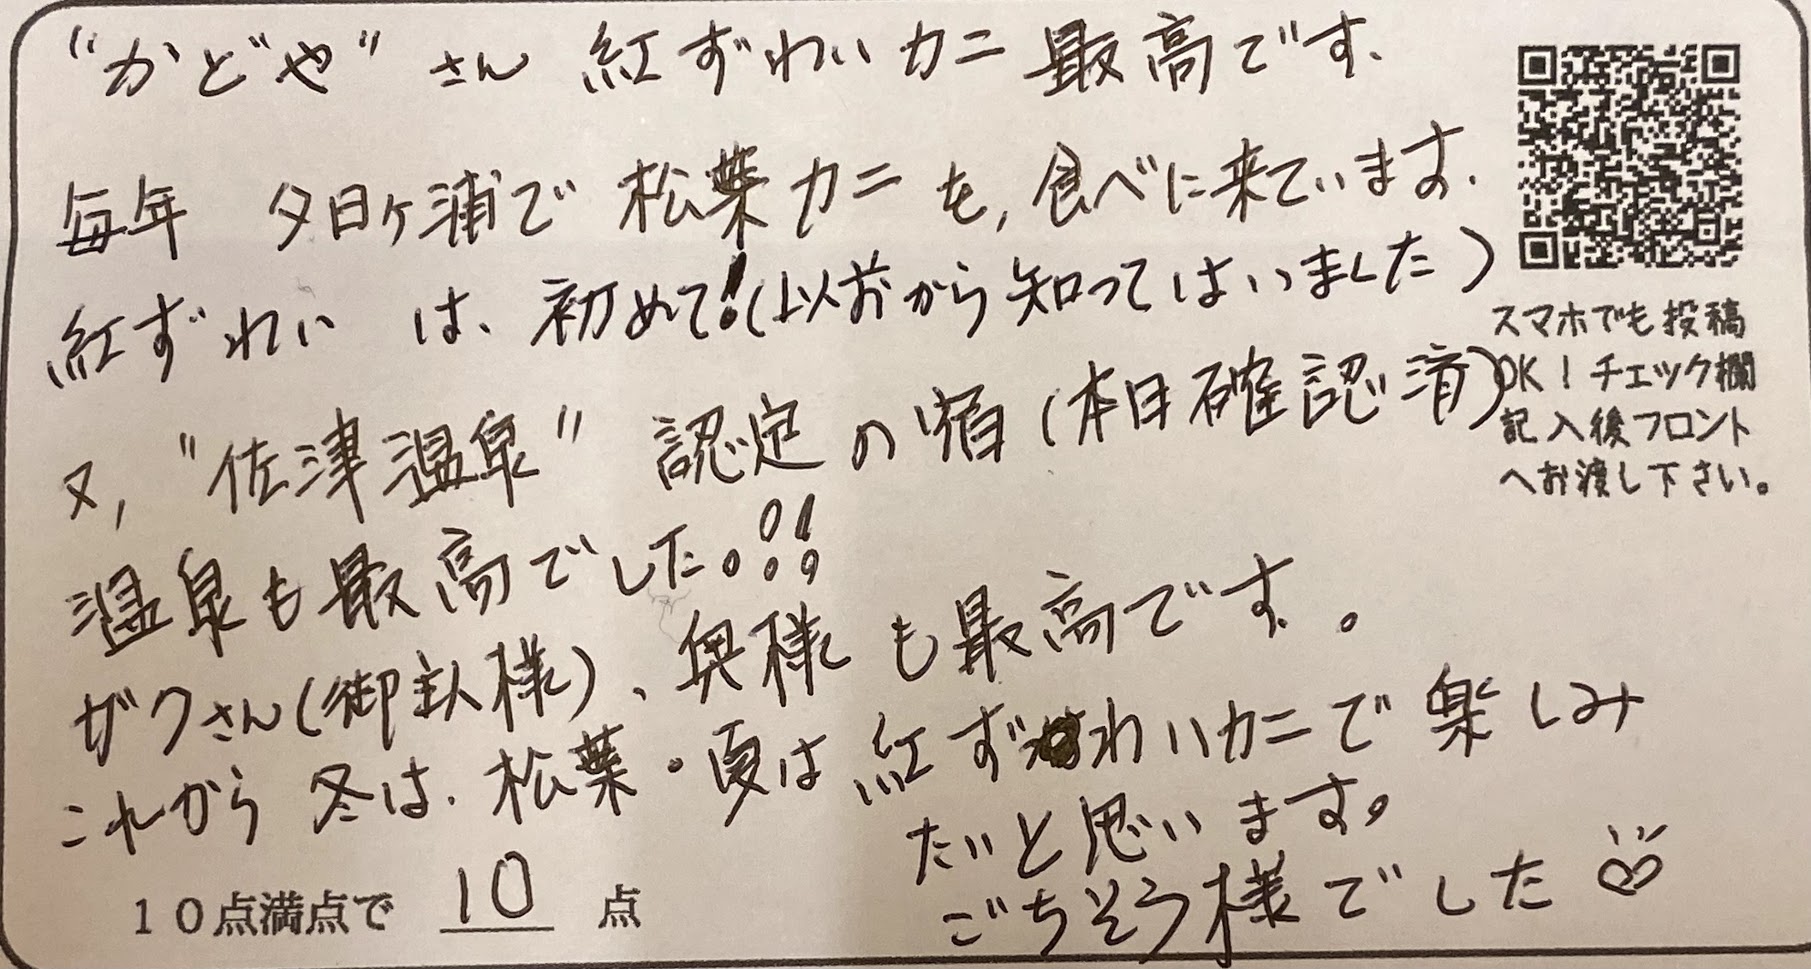 "かどや" さん 紅ずわいカニ 最高です、
毎年 夕日ヶ浦で 松葉カニを, 食べに来ています.
紅ずわい は、初めて!(以前から知ってはいました)
又, "佐津温泉" 認定の宿(本日確認済)
温泉も最高でした。!!
ザワさん(御主人様)、奥様も最高です。
これから 冬は、松葉・夏は紅ずわいカニで楽しみ
たいと思います。
ごちそう様でした♡
10点満点で 10 点
スマホでも投稿
OK!チェック欄
記入後フロント
へお渡し下さい。